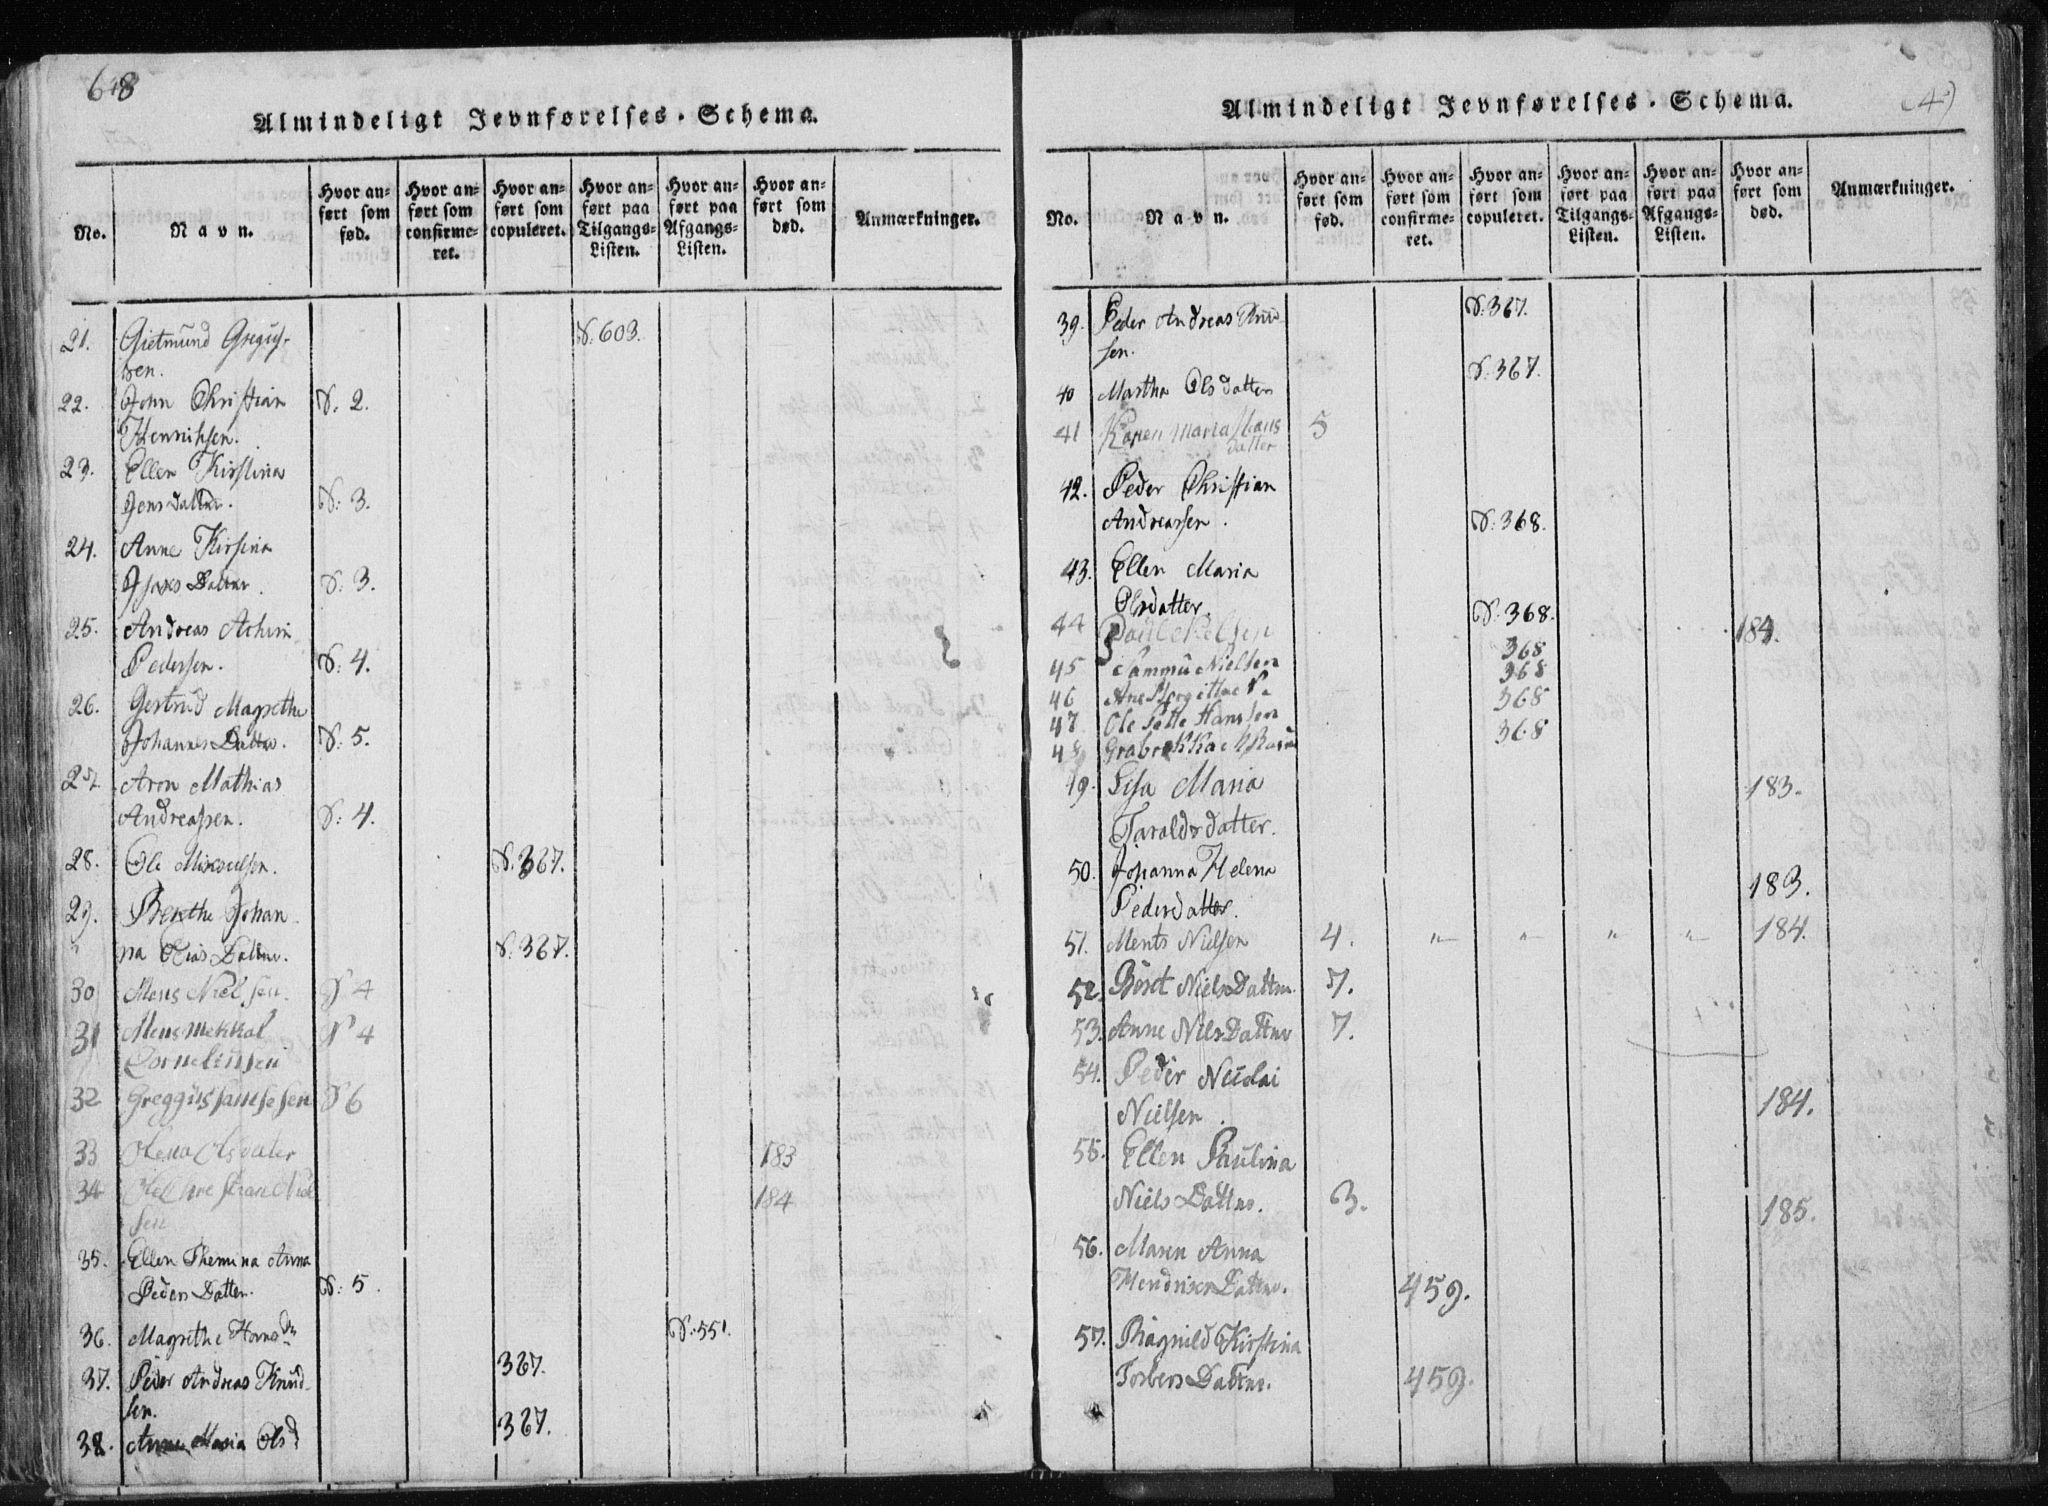 648
Almindeligt Jevnførelses-Schema.
No. Navn. Hvor anført som fød. Hvor anført som confirmeret. Hvor anført som copuleret. Hvor anført paa Tilgangs-Listen. Hvor anført paa Afgangs-Listen. Hvor anført som død. Anmærkninger.
21. Gietmund Gregus- S: 603.
sen.
22. John Christian S. 2.
Henriksen.
23. Ellen Kirstina
Jensdatter. S: 3.
24. Anne Kirstina
Isaks Datter. S: 3.
25. Andreas Achim
Pedersen. S: 4.
26. Gertrud Magrethe
Johannes Datter. S: 5.
27. Aron Mathias
Andreassen. S: 4.
28. Ole S: 367.
29. Berthe Johan-
na Elias Datter. S: 367.
30 Mens Nielsen. S 4
31 Mens Mekkal S 4
Corneliussen
32 Greggus S 6
33 Olena Olsdater 183
34 Ole Niel 184
sen
35. Ellen Themina Anna
Peders Datter. S: 5.
36. Magrethe S: 551.
37. Peder Andreas Knud- 367.
sen.
38. Anne Maria Olsd 367.
Almindeligt Jevnførelses-Schema.
No. Navn. Hvor anført som fød. Hvor anført som confirmeret. Hvor anført som copuleret. Hvor anført paa Tilgangs-Listen. Hvor anført paa Afgangs-Listen. Hvor anført som død. Anmærkninger.
39. Peder Andreas S: 367.
sen.
40 Martha Olsdatter S: 367.
41 Karen Maria Hans 5
datter
42. Peder Christian
Andreassen. S: 368.
43. Ellen Maria
Olsdatter. S: 368.
44 184.
45 Nielsen 368
368
46 Ane 368
47 Ole Hanssen
48 368
49. Lisa Maria 183.
Taraldsdatter.
50. Johanna Helena
Pedersdatter. 183.
51. Ments Nielsen 4. " " " " 184.
52. Beret Niels Datter. 7.
53. Anne Niels Datter 7.
54. Peder Nicolai
Nielsen. 184.
55. Ellen Paulina
Niels Datter. 3. 185.
56. Maren Anna
Hendrikes Datter. 459.
57. Ragnild Kirstina
Torbers Datter. 459.